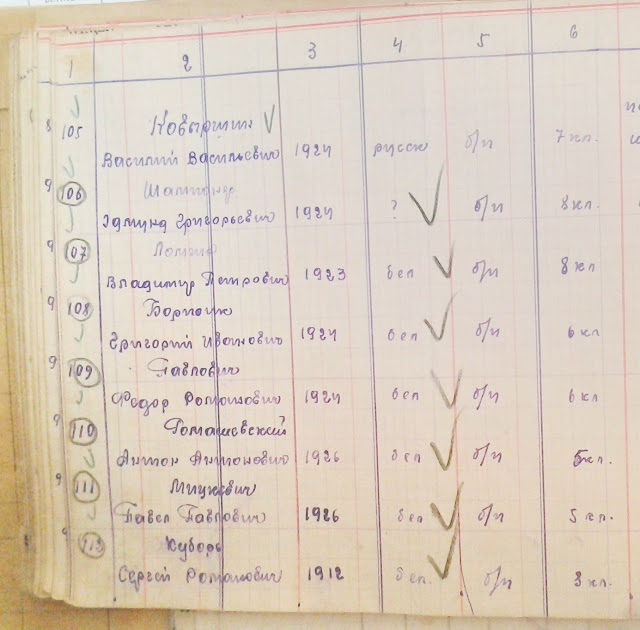 1 2 3 4 5 6
8 105 Ковыршин
Василий Васильевич 1924 русск б/п 7 кл.
9 106
Эдмунд Григорьевич 1924 ? б/п 8 кл.
9 107
Владимир Петрович 1923 бел б/п 8 кл
9 108
Григорий Иванович 1924 бел б/п 6 кл
9 109 Павлович
Федор Романович 1924 бел б/п 6 кл
9 110 Томашевский
Антон Антонович 1926 бел б/п 5 кл.
9 111 Мицкевич
Павел Павлович 1926 бел б/п 5 кл.
9
Сергей Романович 1912 бел. б/п 3 кл.